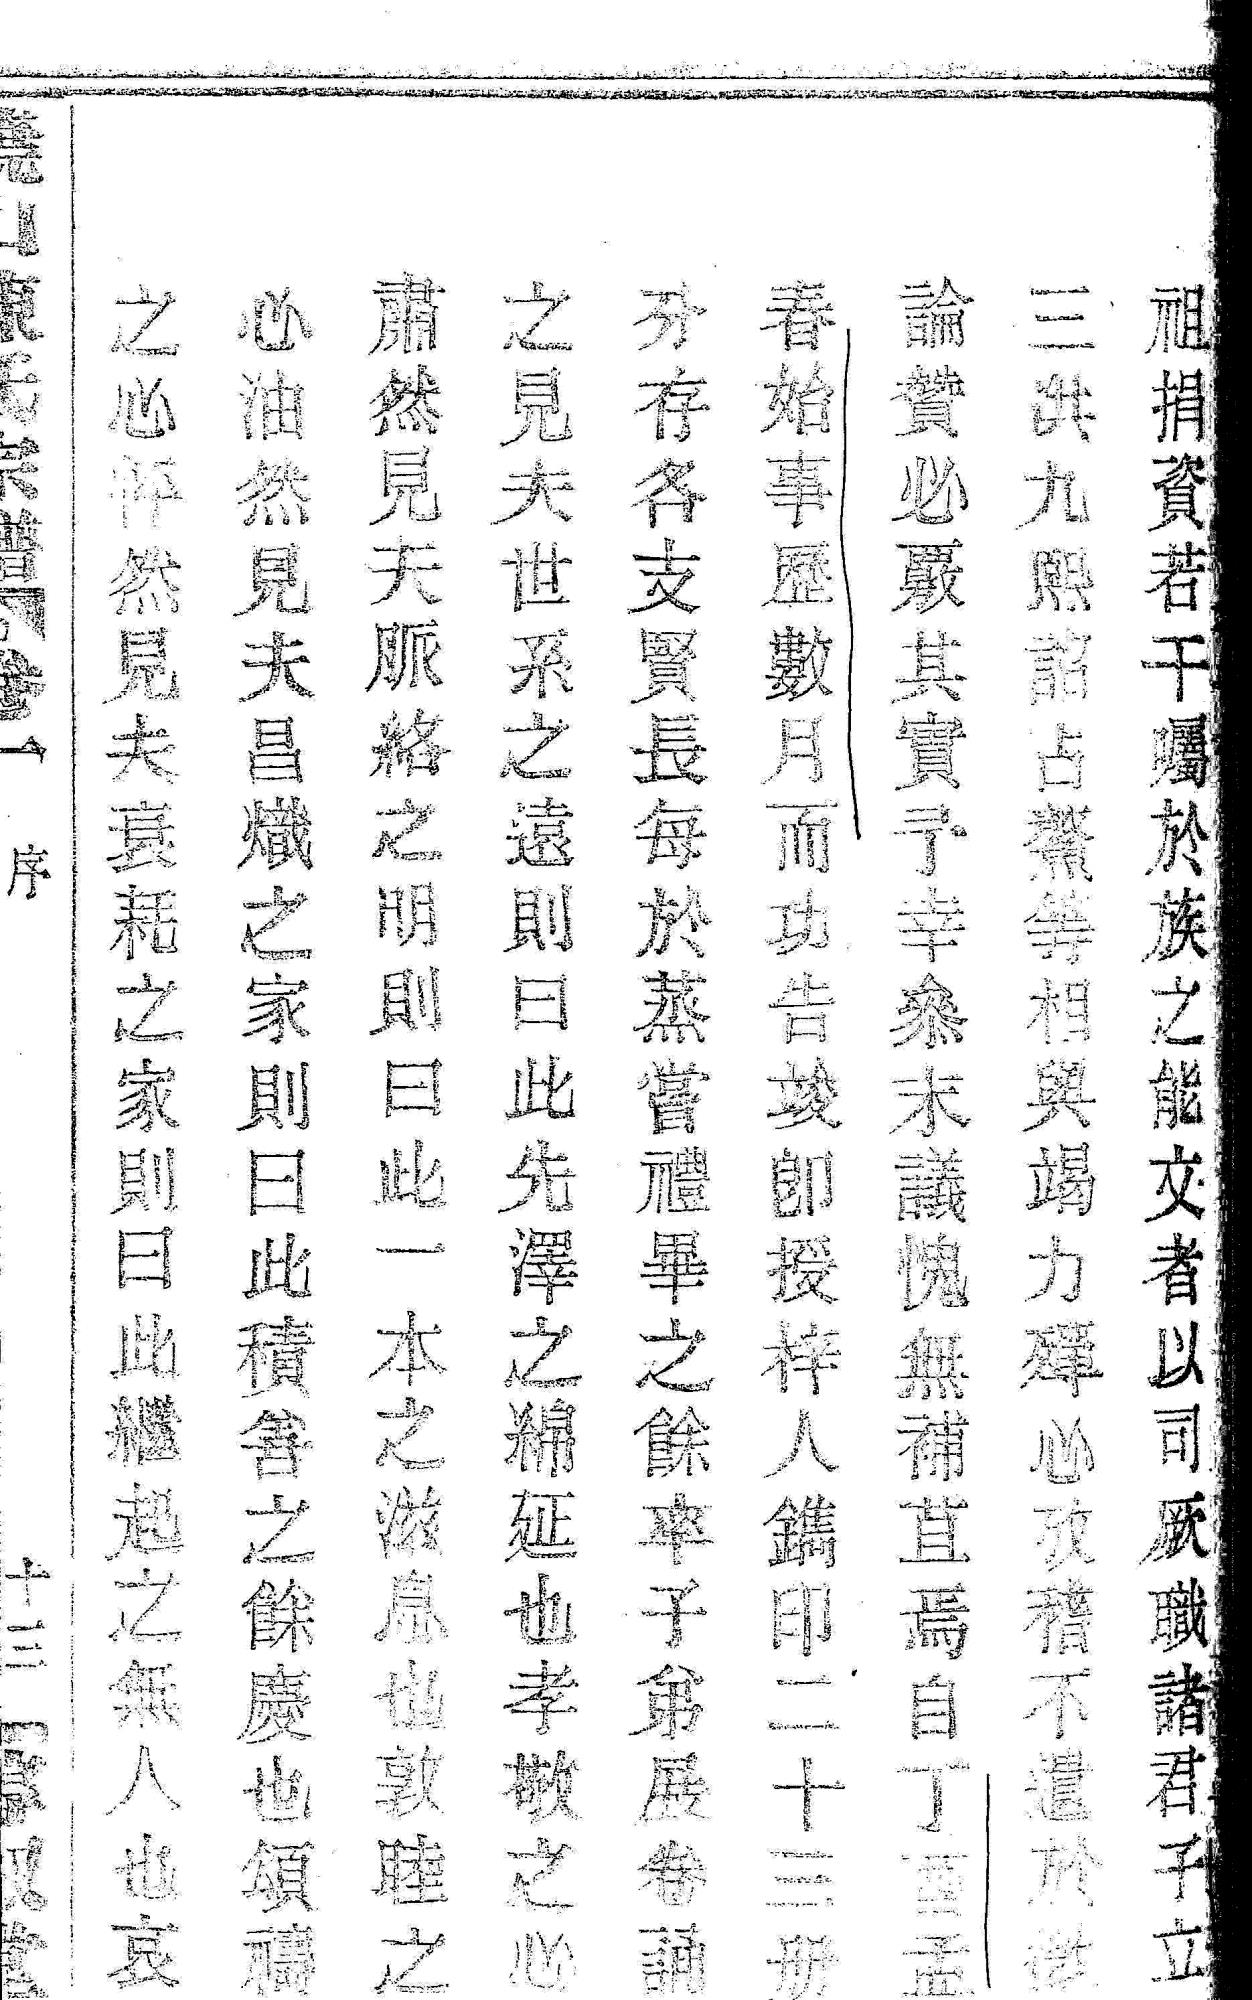 祖捐資若干囑於族之能文者以司厥職諸君子立
三洪九熙詔占鰲等相與竭力殫心攷稽不遺於微
論贊必覈其實予幸叅末議愧無補苴焉自丁酉孟
春始事歷數月而功告竣即授梓人鐫印二十三册
分存各支賢長每於蒸嘗禮畢之餘率子弟展卷誦
之見夫世系之遠則曰此先澤之綿延也孝敬之心
肅然見夫脈絡之明則曰此一本之滋息也敦睦之
心油然見夫昌熾之家則曰此積善之餘慶也頌禱
之心怦然見夫衰耗之家則曰此繼起之無人也哀
山范氏宗譜 卷一 序 十三